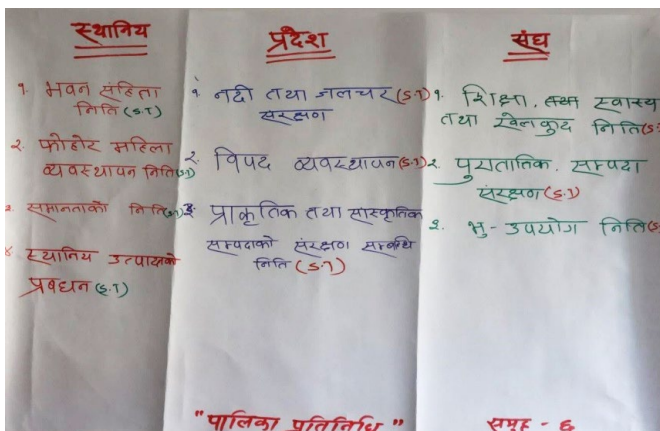 स्थानिय
१. भवन संहिता
निति (S.T)
२. फोहोर महिला
व्यवस्थापन निति(S.T)
३. समानताको निति(S.T)
४ स्थानिय उत्पादनको
प्रबधन (S.T)
प्रदेश
१. नदी तथा जलचर (S.T)
संरक्षण
२. विपद व्यवस्थापन (S.T)
३. प्राकृतिक तथा सास्कृतिक
सम्पदाको संरक्षण सम्बन्धि
निति (S.T)
संघ
१. शिक्षा, तथा स्वास्थ्य
तथा खेलकुद निति (S.
२. पुरातातिक सम्पदा
संरक्षण (S.T)
३. भु-उपयोग निति (S.
"पालिका प्रतितिधि"
समूह - ६